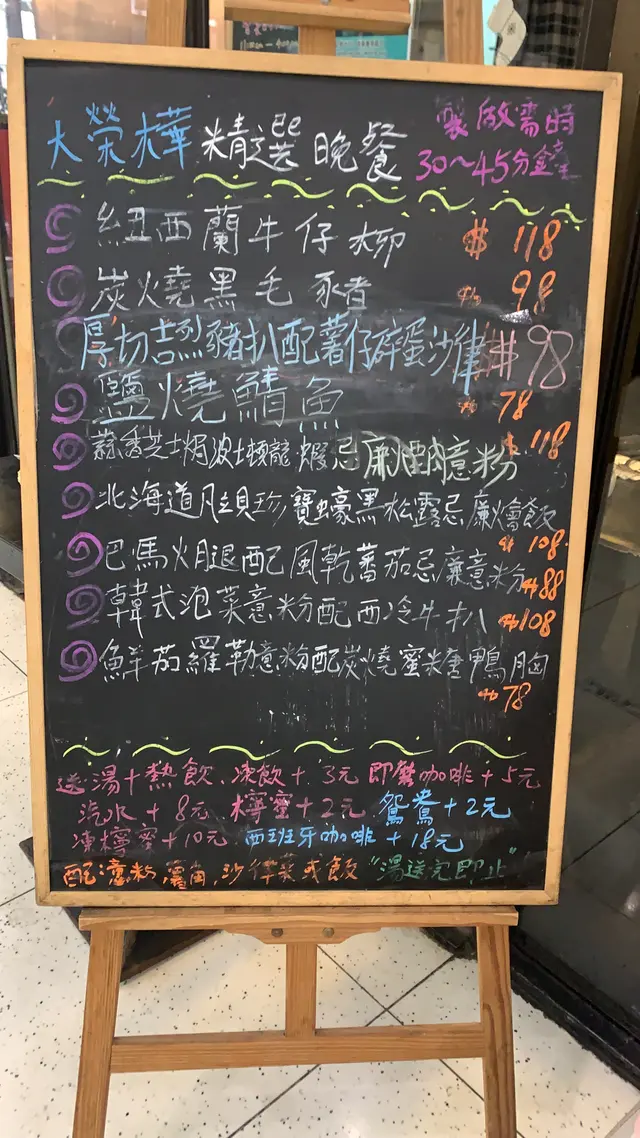 大榮樺 精選 晚餐
製做需時
30~45分鐘
紐西蘭牛仔柳 $118
炭燒黑毛豬 $98
厚切吉烈豬扒配薯仔碎蛋沙律 $98
鹽燒鯖魚 $78
蒜香芝士焗波士頓龍蝦忌廉煙肉意粉 $118
北海道月貝珍寶蠔黑松露忌廉燴飯
$108
巴馬火腿配風乾蕃茄忌廉意粉 $88
韓式泡菜意粉配西冷牛扒 $108
鮮茄羅勒意粉配炭燒蜜糖鴨胸
$78
送湯+熱飲.凍飲+3元 即磨咖啡+5元
汽水+8元 檸蜜+2元 鴛鴦+2元
凍檸蜜+10元 西班牙咖啡+18元
配:意粉,薯角,沙律菜或飯 "湯送完即止"